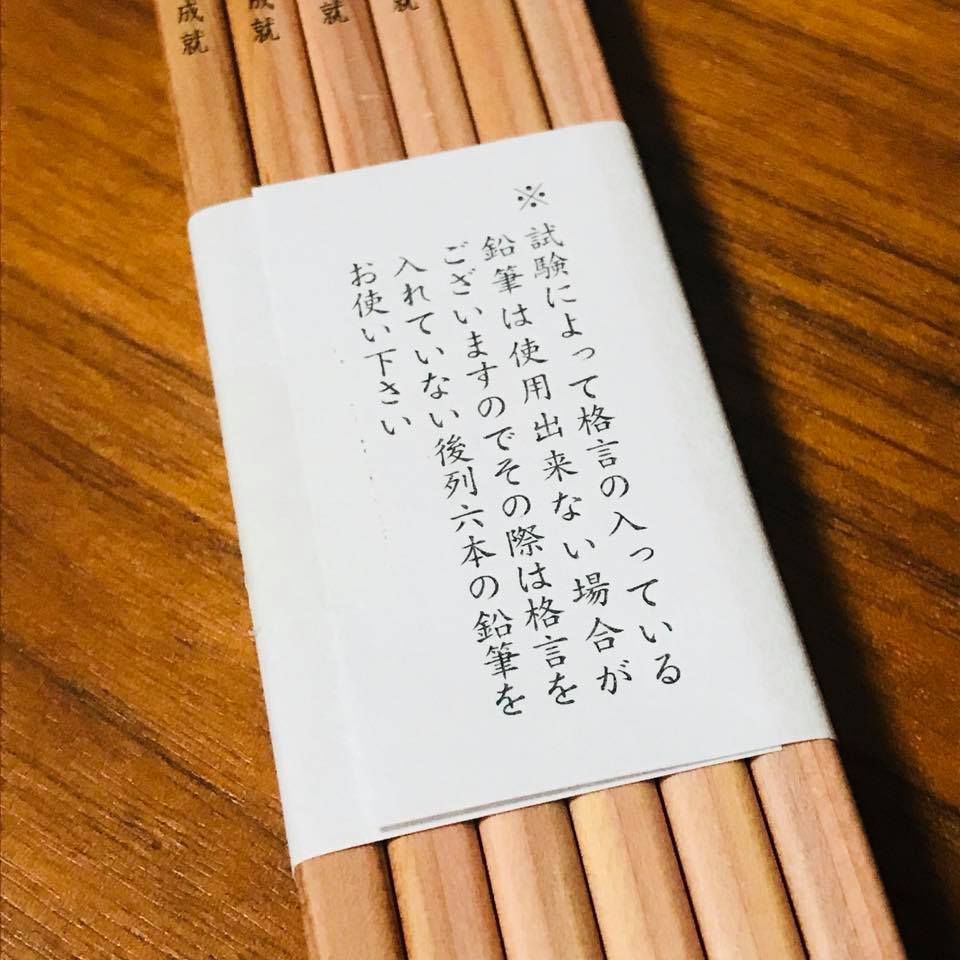 ※試験によって格言の入っている
鉛筆は使用出来ない場合が
ございますのでその際は格言を
入れていない後列六本の鉛筆を
お使い下さい
成就
成就
就
就